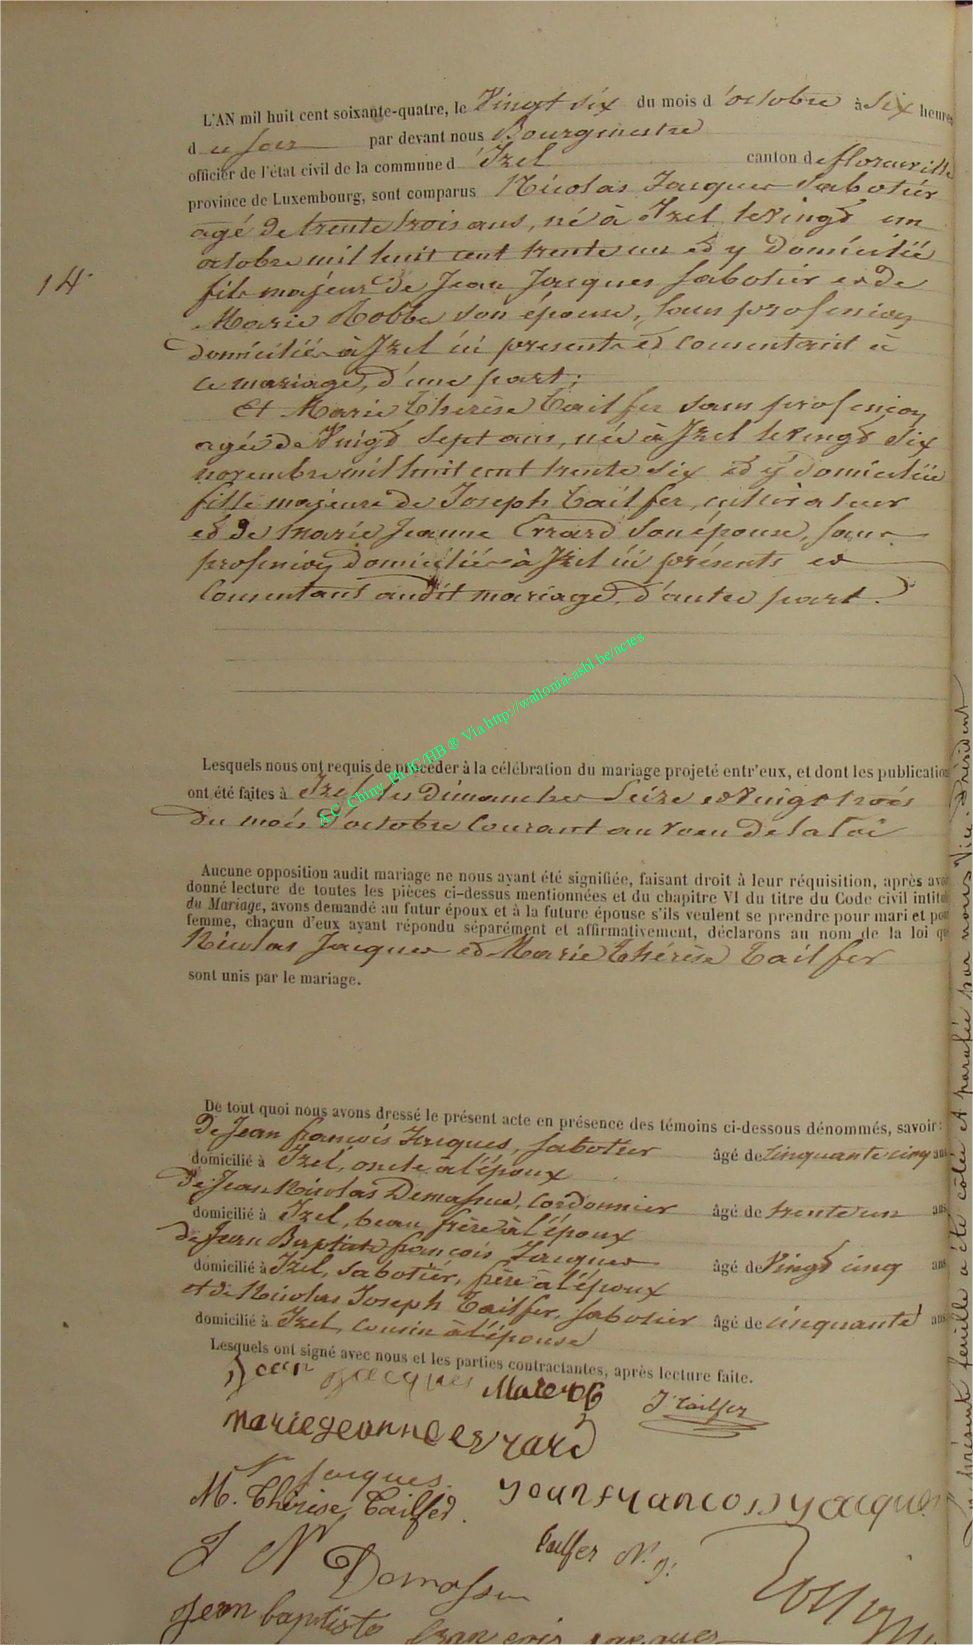 L'AN mil huit cent soixante-quatre, le Vingt six du mois d'octobre à Six heures
du soir par devant nous Bourgmestre
officier de l'état civil de la commune d'Izel canton de florenville
province de Luxembourg, sont comparus Nicolas Jacques Sabotier
agé de trente trois ans, né à Izel le vingt un
octobre mil huit cent trente un et y Domicilié
14
fils majeur de Jean Jacques Sabotier et de
Marie Robbe son épouse, Sans profession
domiciliés à Izel ici presents et consentant à
ce mariage, d'une part;
Et Marie Thérèse Tailfer sans profession
agée de Vingt Sept ans, née à Izel le vingt Six
novembre mil huit cent trente Six et y domiciliée
fille majeure de Joseph Tailfer, cultivateur
et de Marie Jeanne Errard son épouse, sans
profession domiciliés à Izel ici présents et
Consentant audit mariage, d'autre part.
A.C. Chiny, Ph.JC/HB ® Via http://wallonia-asbl.be/actes
Lesquels nous ont requis de procéder à la célébration du mariage projeté entr'eux, et dont les publication
ont été faites à Izel les Dimanches Seize et Vingt trois
du mois d'octobre Courant au voeu de la Loi
Aucune opposition audit mariage ne nous ayant été signifiée, faisant droit à leur réquisition, après avoir
donné lecture de toutes les pièces ci-dessus mentionnées et du chapitre VI du titre du Code civil intitulé
du Mariage, avons demandé au futur époux et à la future épouse s'ils veulent se prendre pour mari et pour
femme, chacun d'eux ayant répondu séparément et affirmativement, déclarons au nom de la loi que
Nicolas Jacques et Marie Thérèse Tailfer
sont unis par le mariage.
De tout quoi nous avons dressé le présent acte en présence des témoins ci-dessous dénommés, savoir:
De Jean françois Jacques, Sabotier âgé de Cinquante cinq ans
domicilié à Izel, oncle à l'époux
De Jean Nicolas Demasse, Cordonnier âgé de trente un ans
domicilié à Izel, beau frère à l'époux
de Jean Baptiste françois Jacques âgé de Vingt cinq ans
domicilié à Izel, Sabotier, frère à l'époux
et de Nicolas Joseph Tailfer, Sabotier âgé de cinquante ans
domicilié à Izel, cousin à l'épouse
Lesquels ont signé avec nous et les parties contractantes, après lecture faite.
Jean Jacques J Tailfer
mariejeanne errard
N Jacques
M. Thérèse Tailfer. jean francois jacques
Tailfer N. J.
J N Demasse
jean baptiste francois jacques
présente feuille a été côtée et parafée par nous Vice-Président